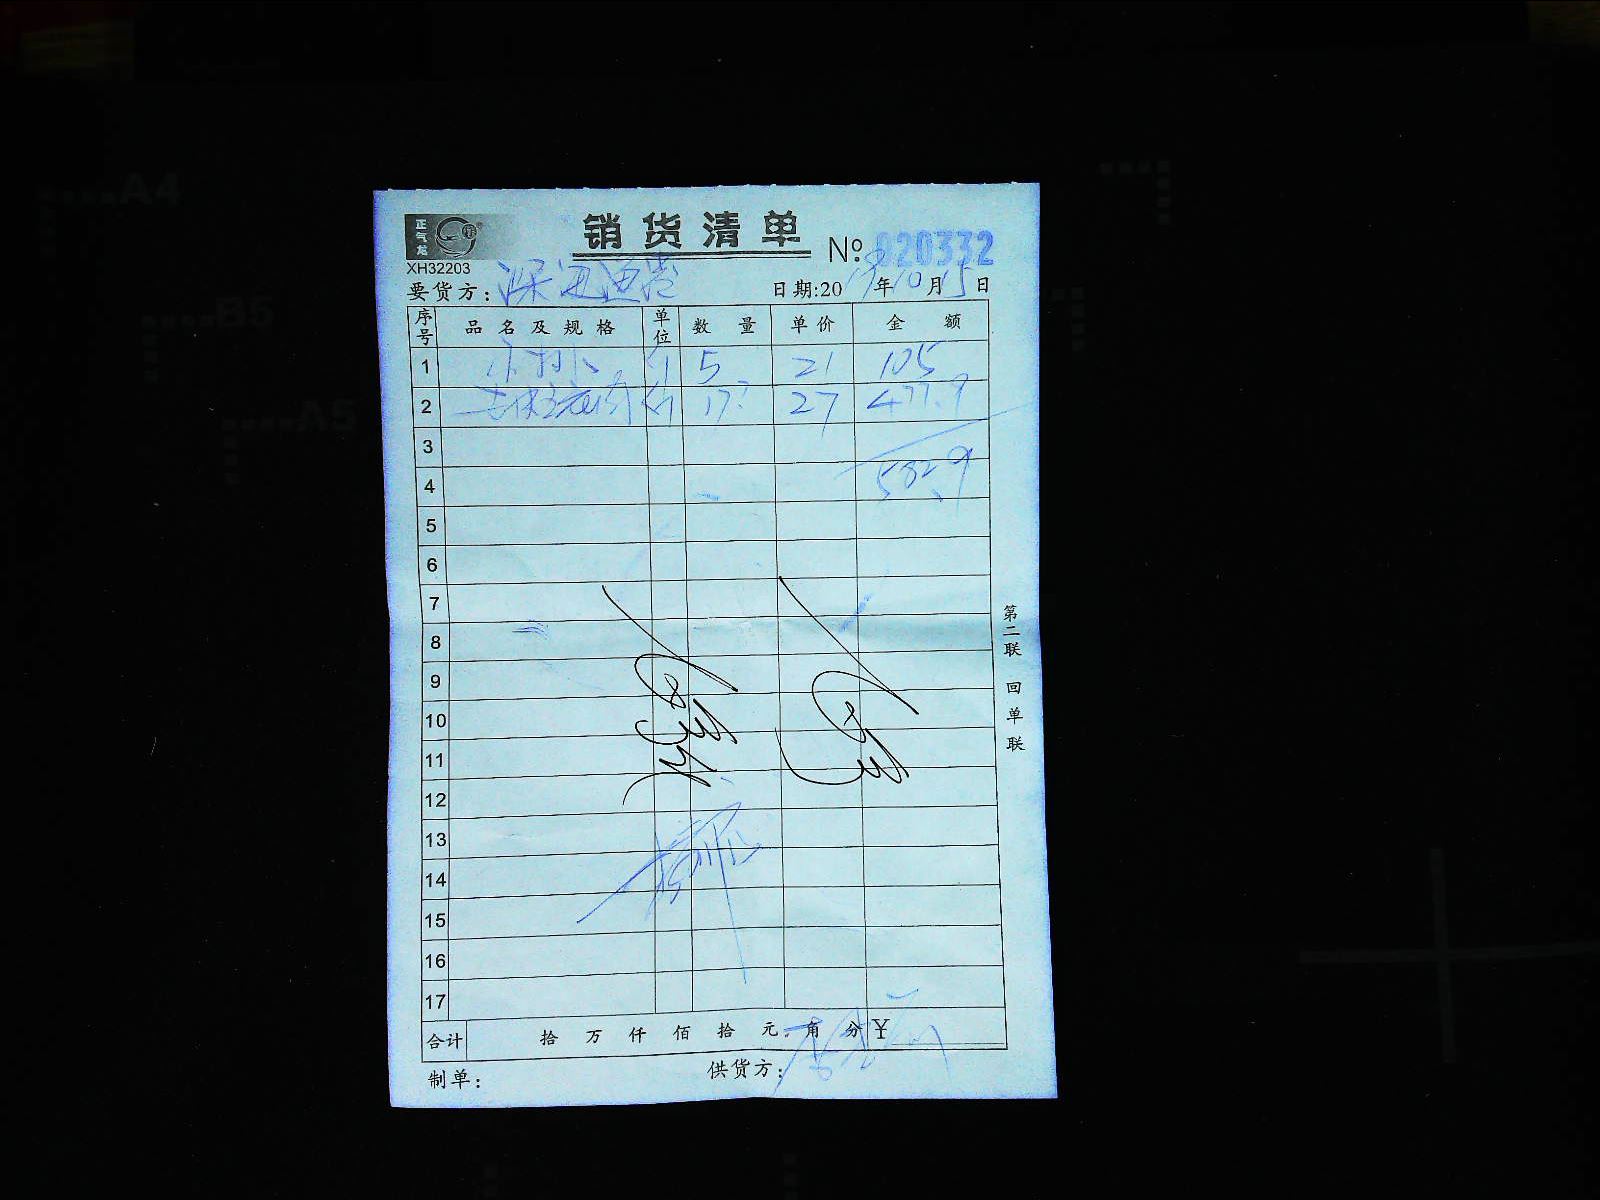 正气龙
销货清单
XH32203
№: 020332
要货方: 日期:2019年10月15日
序号 品名及规格 单位 数量 单价 金额
1 斤 5 21 105
2 斤 27 477.9
3
4 582.9
5
6
7
8
9
10
11
12
13
14
15
16
17
合计 拾 万 仟 佰 拾 元 角 分 ¥
制单: 供货方:
第二联 回单联
A4
B5
A5